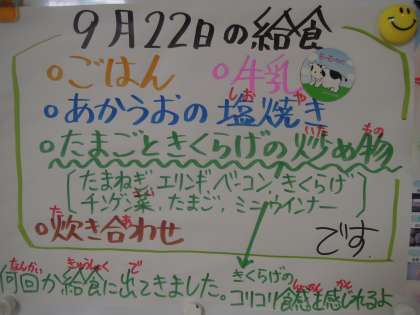 9月22日の給食
○ごはん ○牛乳
しお や
○あかうおの塩焼き
いた もの
○たまごときくらげの炒め物
たまねぎ、エリンギ、ベーコン、きくらげ
チンゲン菜、たまご、ミニウインナー
た あ
○炊き合わせ
です
なんかい きゅうしょく で
何回か給食に出てきました。
きくらげの
しょっかん かん
コリコリ食感を感じれるよ